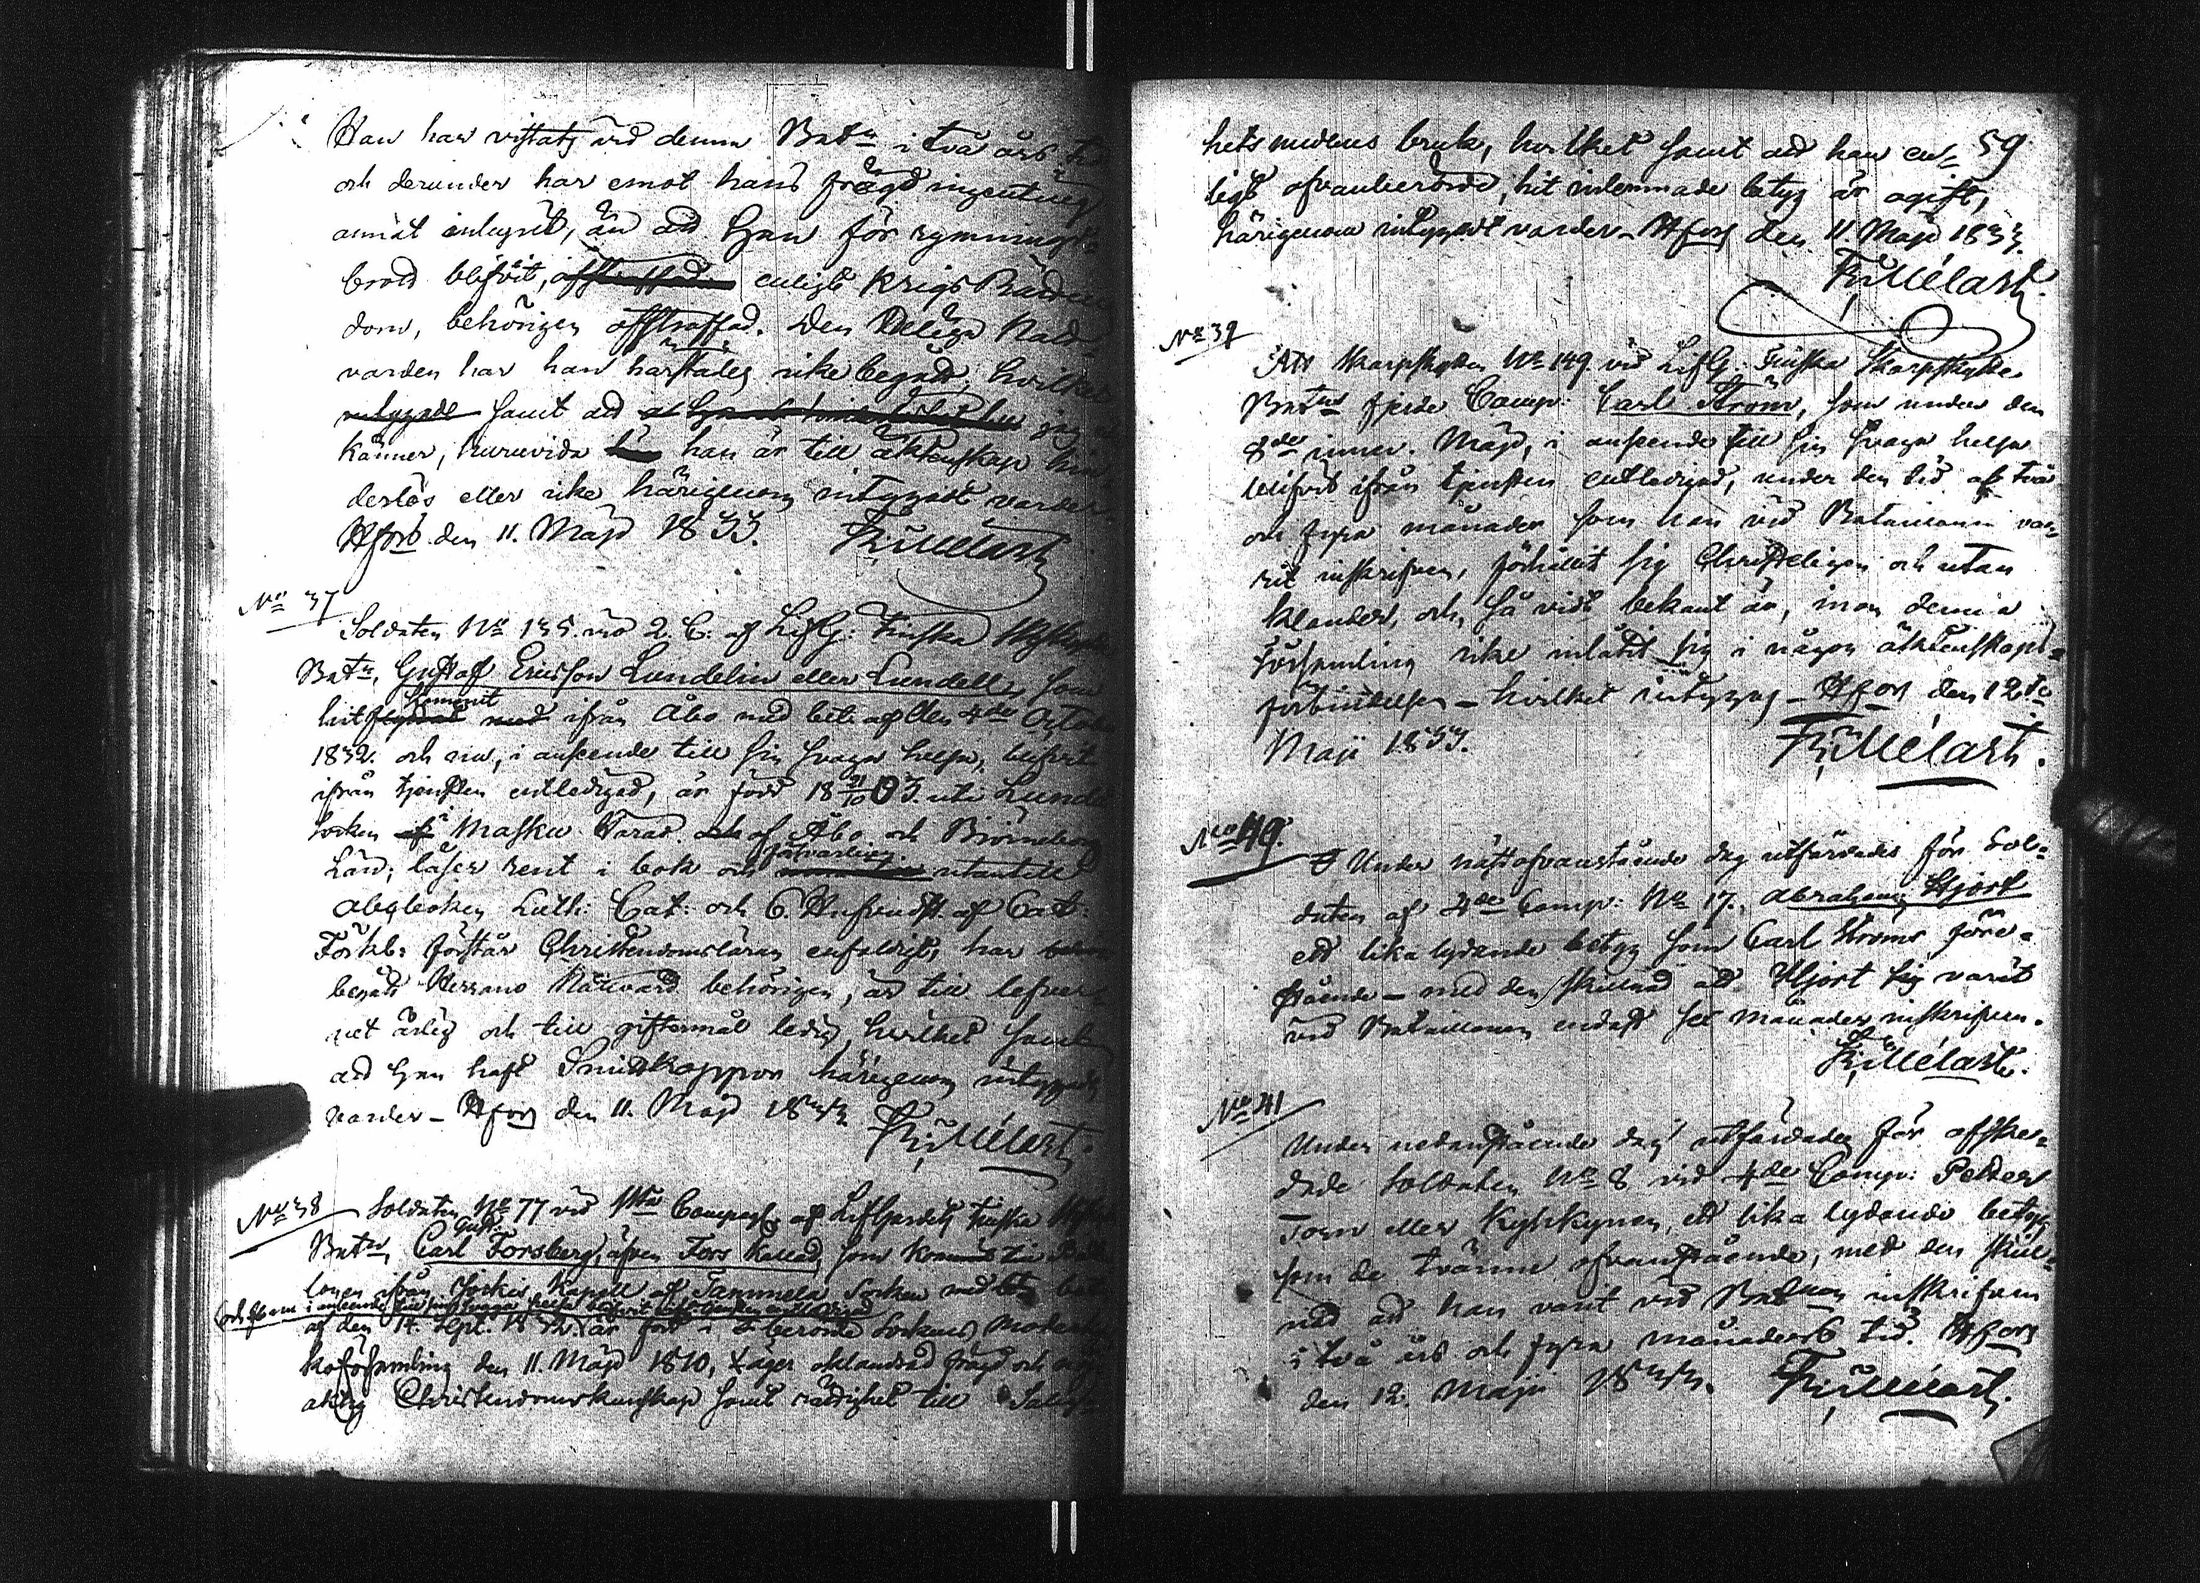 Han har vistats vid denna Batn i två års
och derunder har emot hans frägd ingenting
annat inlupit, än att han för rymnings-
brott blifvit, enligt Krigs Rättens
dom, behörigen afstraffad. Den Heliga Natt-
varden har han härstädes icke begått, hvilket
samt att
känner, huruvida han är till äktenskap hin-
derlös eller icke härigenom intygadt varder
Hfors den 11. Maji 1833.
No 37
Soldaten No 135. vid 2. C. af LifG: Finska
Batn, Gustaf Ericsson Lundelin eller Lundell, som
Kommit
hit ifrån Åbo med bet: af den 4de
1832. och nu, i anseende till sin svaga helsa, blifvit
ifrån tjensten entledigad, är född 18 21/10 03. uti Lundo
Socken af Masku Härad och af Åbo och Björneborgs
Län; läser rent i bok och utantill
abcboken Luth: Cat: och af Cat:
Förkl: förstår Christendomsläran enfaldigt, har
begått Herrans Nattvard behörigen, är till lefver-
net ärlig och till giftermål ledig, hvilket samt
att han haft Smittkoppor härigenom intygadt
varder – Hfors den 11. Maji 1833
No 38
Soldaten No 77 vid Compagn: af LifGardets Finska
Gust:
Batn, Carl Forsberg, äfven Fors kallad, som kommit till
ifrån Jockis Kapell af Tammela Socken med
och som i anseende till sin svaga helsa blifvit ifrån tjensten entledigad
af den 14. Sept. 1832. är född i berörde Sockens
den 11. Maji 1810, äger oklandrad frägd och
aktig Christendomskunskap samt rättighet till Salig-
59
hets medlens bruk, hvilket samt att han en-
ligt ofvanberörde, hit inlemnade betyg är ogift,
härigenom intygadt varder – Hfors den 11 Maji 1833.
No 39
Att Skarpskytten No 149 vid LifG: Finska Skarpskytte
Batns fjerde Comp: Carl Ström, som under den
8de innev. Maji, i anseende till sin svaga helsa
blifvit ifrån tjensten entledigad, under den tid af två
och fyra månader som han vid Bataillonen va-
rit inskrifven, förhållit sig Christeligen och utan
klander, och, så vidt bekant är, inom denna
Församling icke inlåtit sig i någon äktenskaps-
förbindelse – hvilket intygas – Hfors den 12te
Maji 1833.
No 40.
Under nästofvanstående dag utfärdades för Sol-
daten af 4de Comp: No 17. Abraham Hjort
ett lika lydande betyg som Carl Ströms före-
stående – med den skillnad att Hjort varit
vid Bataillonen endast sex månader inskrifven.
No 41
Under nedanstående dag utfärdades för afske-
dade Soldaten No 8 vid 4de Comp: Petter
Torn eller Kyhkynen, ett lika lydande betyg
som de tvänne ofvanstående, med den skill-
nad att han varit vid Batnon inskrifven
i två års och fyra månaders tid. Hfors
den 12. Maji 1833.